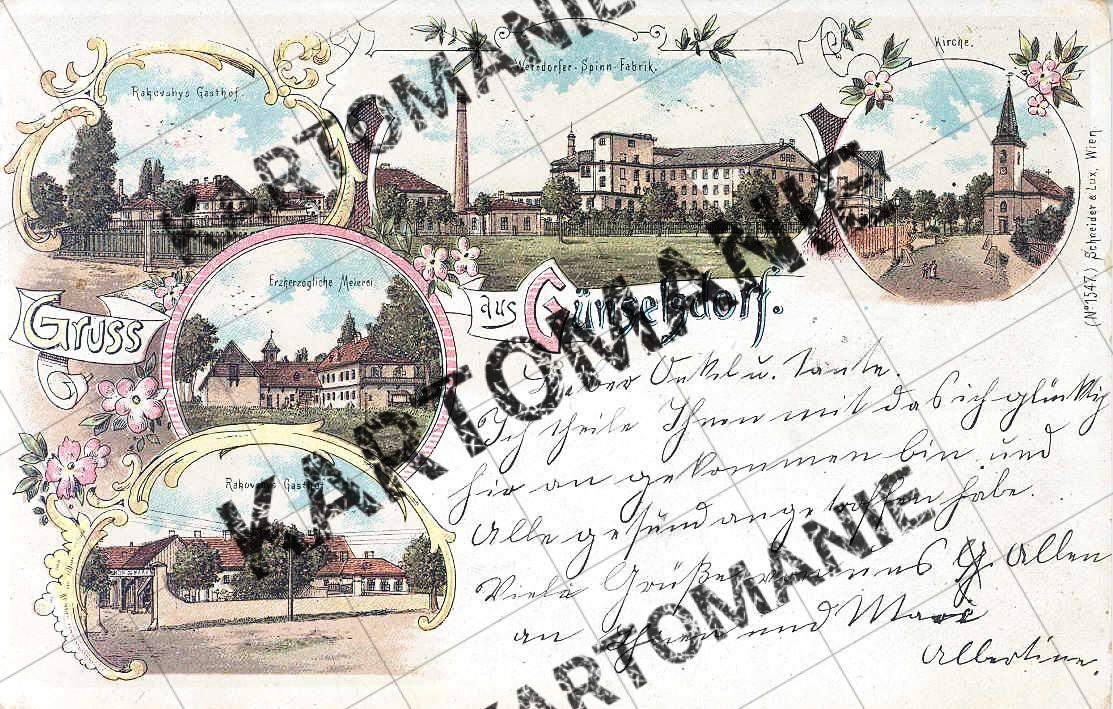 Rakovshys Gasthof.
Wersdorfer-Spinn-Fabrik.
Kirche.
Erzherzogliche Meierei.
Gruss
aus Günselsdorf.
Rakovshys Gasthof
(No 1547.) Schneider & Lux, Wien.
Lieber Onkel u. Tante.
Ich theile Ihnen mit das ich glücklich
hir an gekommen bin und
Alle gesund angetroffen habe.
Viele Grüße von uns Allen
an Ihnen und
Albertine.
KARTOMANIE
KARTOMANIE
KARTOMANIE
KARTOMANIE
KARTOMANIE